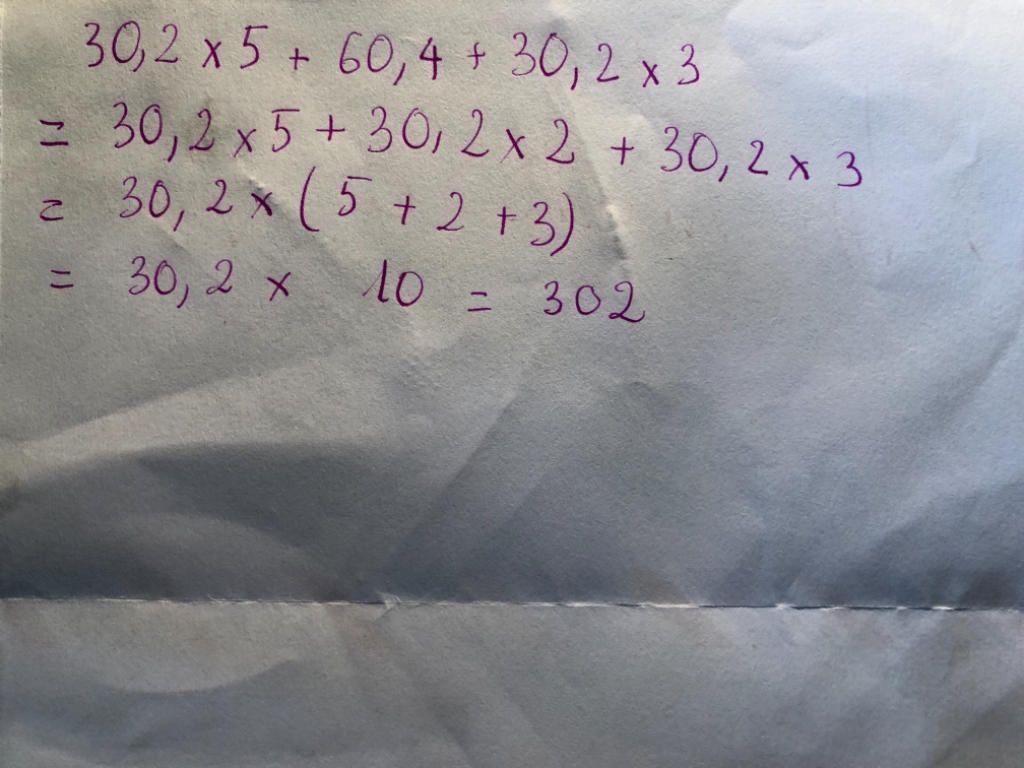 30,2 x 5 + 60,4 + 30,2 x 3
= 30,2 x 5 + 30,2 x 2 + 30,2 x 3
= 30,2 x (5 + 2 + 3)
= 30,2 x 10 = 302